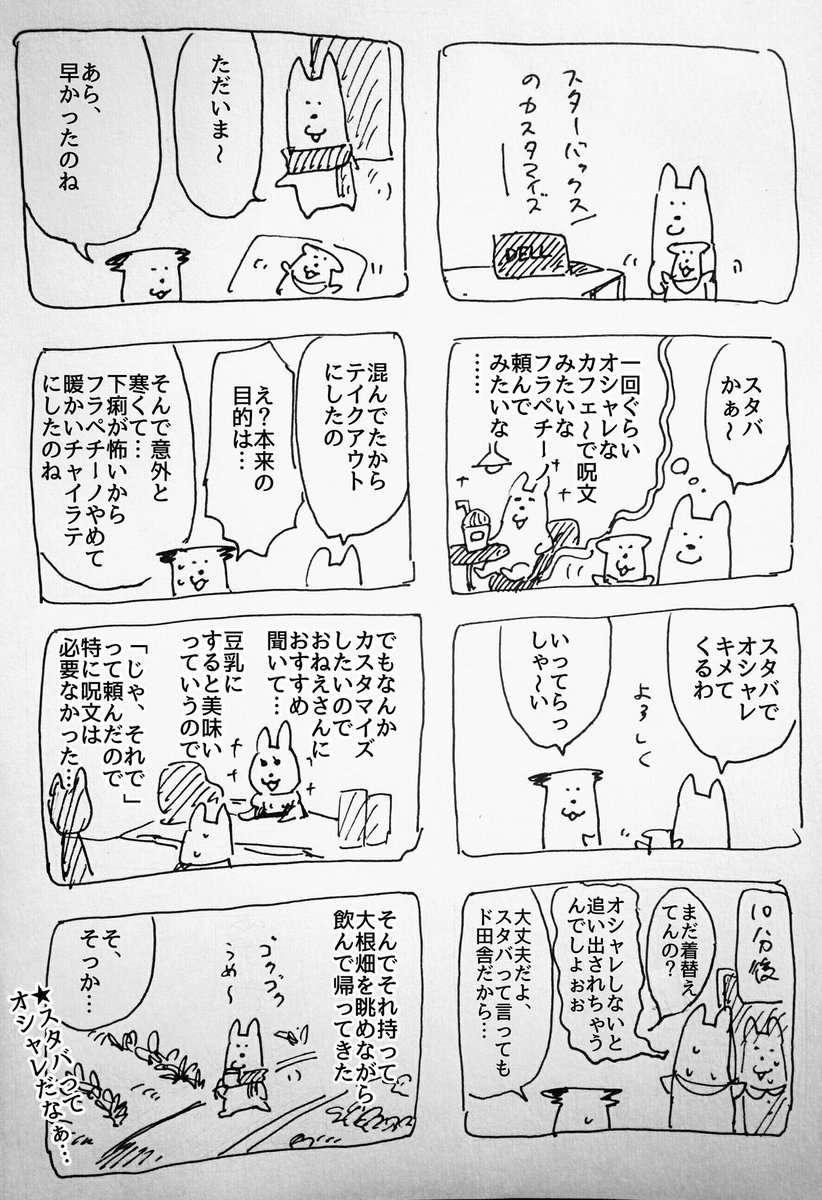 スターバックス
のカスタマイズ
DELL
スタバ
かぁ〜
一回ぐらい
オシャレな
カフェ〜で呪文
みたいな
フラペチーノ
頼んで
みたいな
……
スタバで
オシャレ
キメて
くるわ
よろしく
いってらっ
しゃ〜い
10分後
まだ着替え
てんの?
オシャレしないと
追い出されちゃう
んでしょぉぉ
大丈夫だよ、
スタバって言っても
ド田舎だから…
ただいま〜
あら、
早かったのね
混んでたから
テイクアウト
にしたの
え?本来の
目的は…
そんで意外と
寒くて…
下痢が怖いから
フラペチーノやめて
暖かいチャイラテ
にしたのね
でもなんか
カスタマイズ
したいので
おねえさんに
おすすめ
聞いて…
豆乳に
すると美味い
っていうので
「じゃ、それで」
って頼んだので
特に呪文は
必要なかった…
そんでそれ持って
大根畑を眺めながら
飲んで帰ってきた
ゴクゴク
うめ〜
そ、
そっか…
★スタバって
オシャレだなぁ…